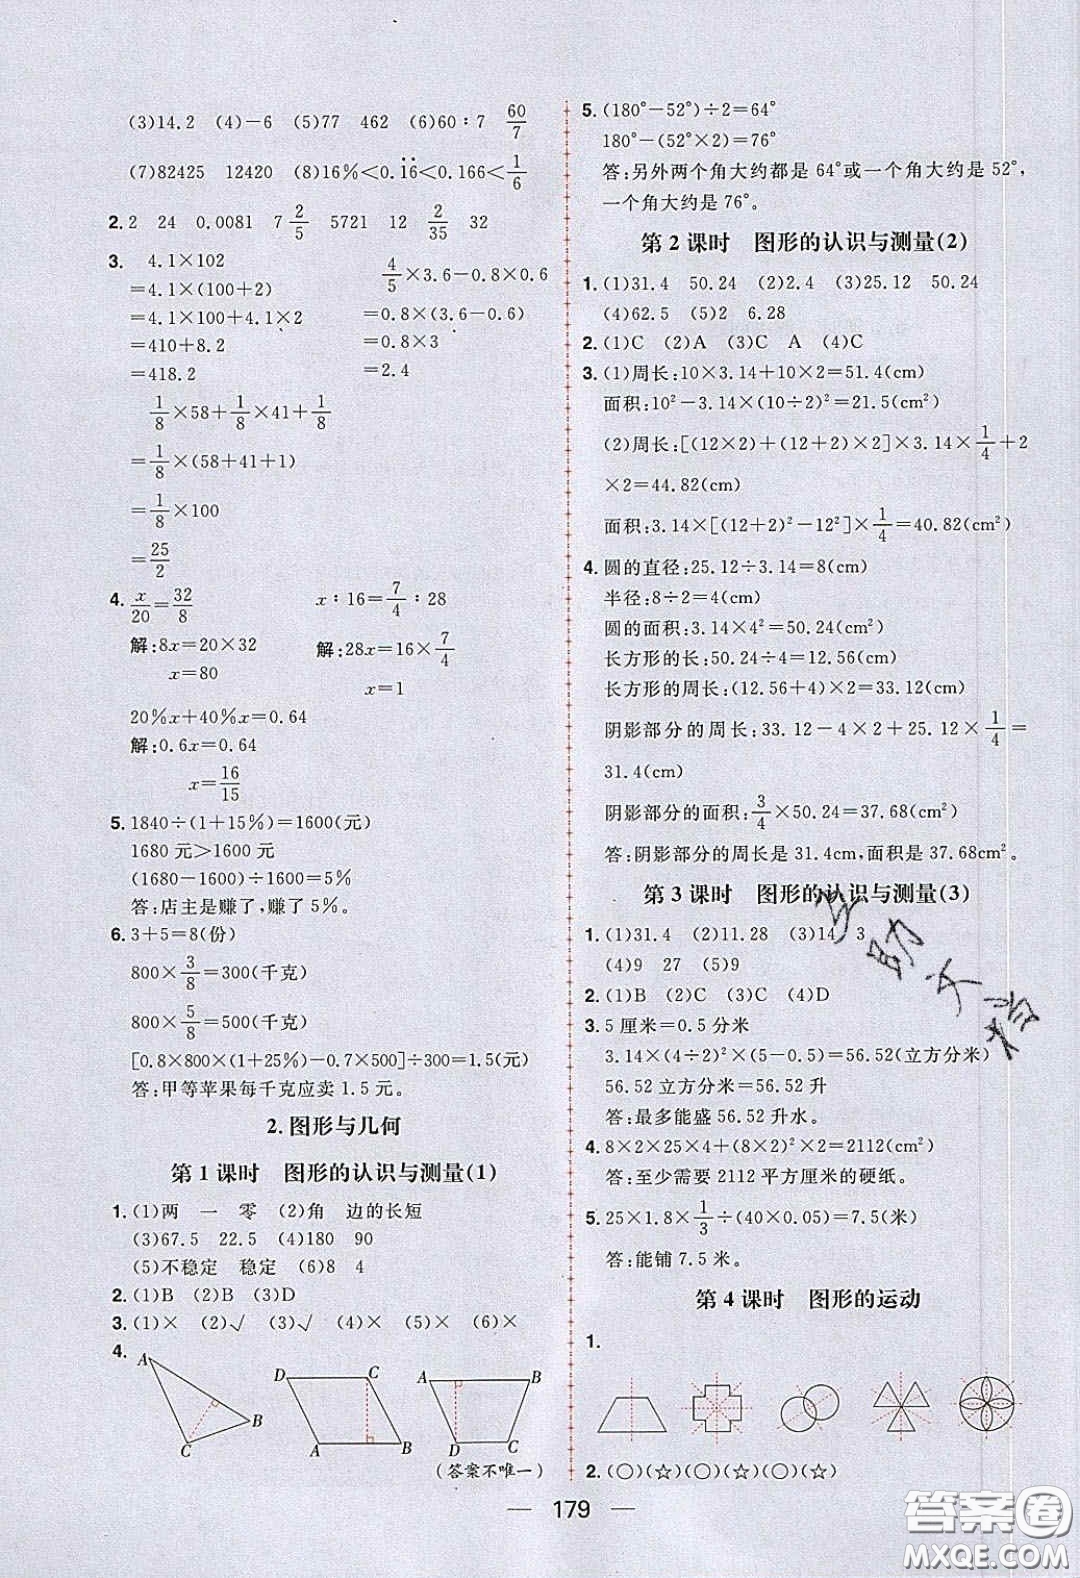 (3)14.2 (4)-6 (5)77 462 (6)60∶7 60/7
(7)82425 12420 (8)16%<0.1̇6̇<0.166<1/6
2. 2 24 0.0081 7 2/5 5721 12 2/35 32
3. 4.1×102
=4.1×(100+2)
=4.1×100+4.1×2
=410+8.2
=418.2
4/5×3.6-0.8×0.6
=0.8×(3.6-0.6)
=0.8×3
=2.4
1/8×58+1/8×41+1/8
=1/8×(58+41+1)
=1/8×100
=25/2
4. x/20=32/8
解:8x=20×32
x=80
x∶16=7/4∶28
解:28x=16×7/4
x=1
20%x+40%x=0.64
解:0.6x=0.64
x=16/15
5. 1840÷(1+15%)=1600(元)
1680元>1600元
(1680-1600)÷1600=5%
答:店主是赚了,赚了5%。
6. 3+5=8(份)
800×3/8=300(千克)
800×5/8=500(千克)
[0.8×800×(1+25%)-0.7×500]÷300=1.5(元)
答:甲等苹果每千克应卖1.5元。
2.图形与几何
第1课时 图形的认识与测量(1)
1. (1)两 一 零 (2)角 边的长短
(3)67.5 22.5 (4)180 90
(5)不稳定 稳定 (6)8 4
2. (1)B (2)B (3)D
3. (1)× (2)√ (3)√ (4)× (5)× (6)×
4.
A B C
D C A B
A B D C
(答案不唯一)
5. (180°-52°)÷2=64°
180°-(52°×2)=76°
答:另外两个角大约都是64°或一个角大约是52°,
一个角大约是76°。
第2课时 图形的认识与测量(2)
1. (1)31.4 50.24 (2)2.4 (3)25.12 50.24
(4)62.5 (5)2 6.28
2. (1)C (2)A (3)C A (4)C
3. (1)周长:10×3.14+10×2=51.4(cm)
面积:10²-3.14×(10÷2)²=21.5(cm²)
(2)周长:[(12×2)+(12+2)×2]×3.14×1/4+2
×2=44.82(cm)
面积:3.14×[(12+2)²-12²]×1/4=40.82(cm²)
4. 圆的直径:25.12÷3.14=8(cm)
半径:8÷2=4(cm)
圆的面积:3.14×4²=50.24(cm²)
长方形的长:50.24÷4=12.56(cm)
长方形的周长:(12.56+4)×2=33.12(cm)
阴影部分的周长:33.12-4×2+25.12×1/4=
31.4(cm)
阴影部分的面积:3/4×50.24=37.68(cm²)
答:阴影部分的周长是31.4cm,面积是37.68cm²。
第3课时 图形的认识与测量(3)
1. (1)31.4 (2)11.28 (3)14 3
(4)9 27 (5)9
2. (1)B (2)C (3)C (4)D
3. 5厘米=0.5分米
3.14×(4÷2)²×(5-0.5)=56.52(立方分米)
56.52立方分米=56.52升
答:最多能盛56.52升水。
4. 8×2×25×4+(8×2)×(8×2)×2=2112(cm²)
答:至少需要2112平方厘米的硬纸。
5. 25×1.8×1/3÷(40×0.05)=7.5(米)
答:能铺7.5米。
第4课时 图形的运动
1.
2. (○)(☆)(☆)(○)(☆)
179
答案圈
MXQE.COM